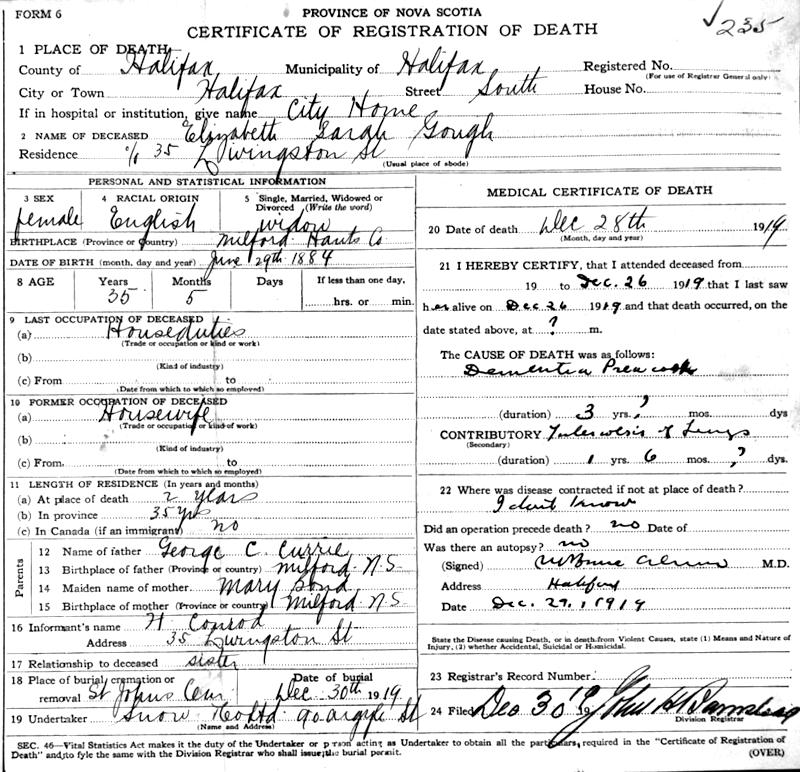 FORM 6
PROVINCE OF NOVA SCOTIA
235
CERTIFICATE OF REGISTRATION OF DEATH
1 PLACE OF DEATH
County of Halifax Municipality of Halifax Registered No.
(For use of Registrar General only)
City or Town Halifax Street South House No.
If in hospital or institution, give name City Home
2 NAME OF DECEASED Elizabeth Sarah Gough
Residence c/o 35 Livingston St
(Usual place of abode)
PERSONAL AND STATISTICAL INFORMATION
3 SEX female
4 RACIAL ORIGIN English
5 Single, Married, Widowed or Divorced (Write the word) widow
BIRTHPLACE (Province or Country) Milford Hants Co
DATE OF BIRTH (month, day and year) June 29th 1884
8 AGE Years Months Days If less than one day,
35 5 hrs. or min.
9 LAST OCCUPATION OF DECEASED
(a) Houseduties
(Trade or occupation or kind of work)
(b)
(Kind of industry)
(c) From to
(Date from which to which so employed)
10 FORMER OCCUPATION OF DECEASED
(a) Housewife
(Trade or occupation or kind of work)
(b)
(Kind of industry)
(c) From to
(Date from which to which so employed)
11 LENGTH OF RESIDENCE (In years and months)
(a) At place of death 2 years
(b) In province 35 yrs
(c) In Canada (if an immigrant) no
Parents
12 Name of father George C Currie
13 Birthplace of father (Province or country) Milford N.S
14 Maiden name of mother Mary
15 Birthplace of mother (Province or country) Milford N S
16 Informant's name H Conrod
Address 35 Livingston St
17 Relationship to deceased sister
18 Place of burial cremation or removal St Johns Cem Date of burial Dec 30th 1919
19 Undertaker Snow Co Ltd 90 Argyle St
(Name and Address)
MEDICAL CERTIFICATE OF DEATH
20 Date of death Dec 28th 1919
(Month, day and year)
21 I HEREBY CERTIFY, that I attended deceased from
19 to Dec. 26 1919 that I last saw
her alive on Dec 26 1919 and that death occurred, on the
date stated above, at ? m.
The CAUSE OF DEATH was as follows:
Dementia Preacook
(duration) 3 yrs. ? mos. dys
CONTRIBUTORY Tuberculosis of Lungs
(Secondary)
(duration) 1 yrs. 6 mos. ? dys.
22 Where was disease contracted if not at place of death?
I dont know
Did an operation precede death? no Date of
Was there an autopsy? no
(Signed) M.D.
Address Halifax
Date Dec. 29, 1919
State the Disease causing Death, or in death from Violent Causes, state (1) Means and Nature of
Injury, (2) whether Accidental, Suicidal or Homicidal.
23 Registrar's Record Number
24 Filed Dec 30 19 John H
Division Registrar
SEC. 46—Vital Statistics Act makes it the duty of the Undertaker or person acting as Undertaker to obtain all the particulars, required in the "Certificate of Registration of
Death" and to fyle the same with the Division Registrar who shall issue the burial permit.
(OVER)